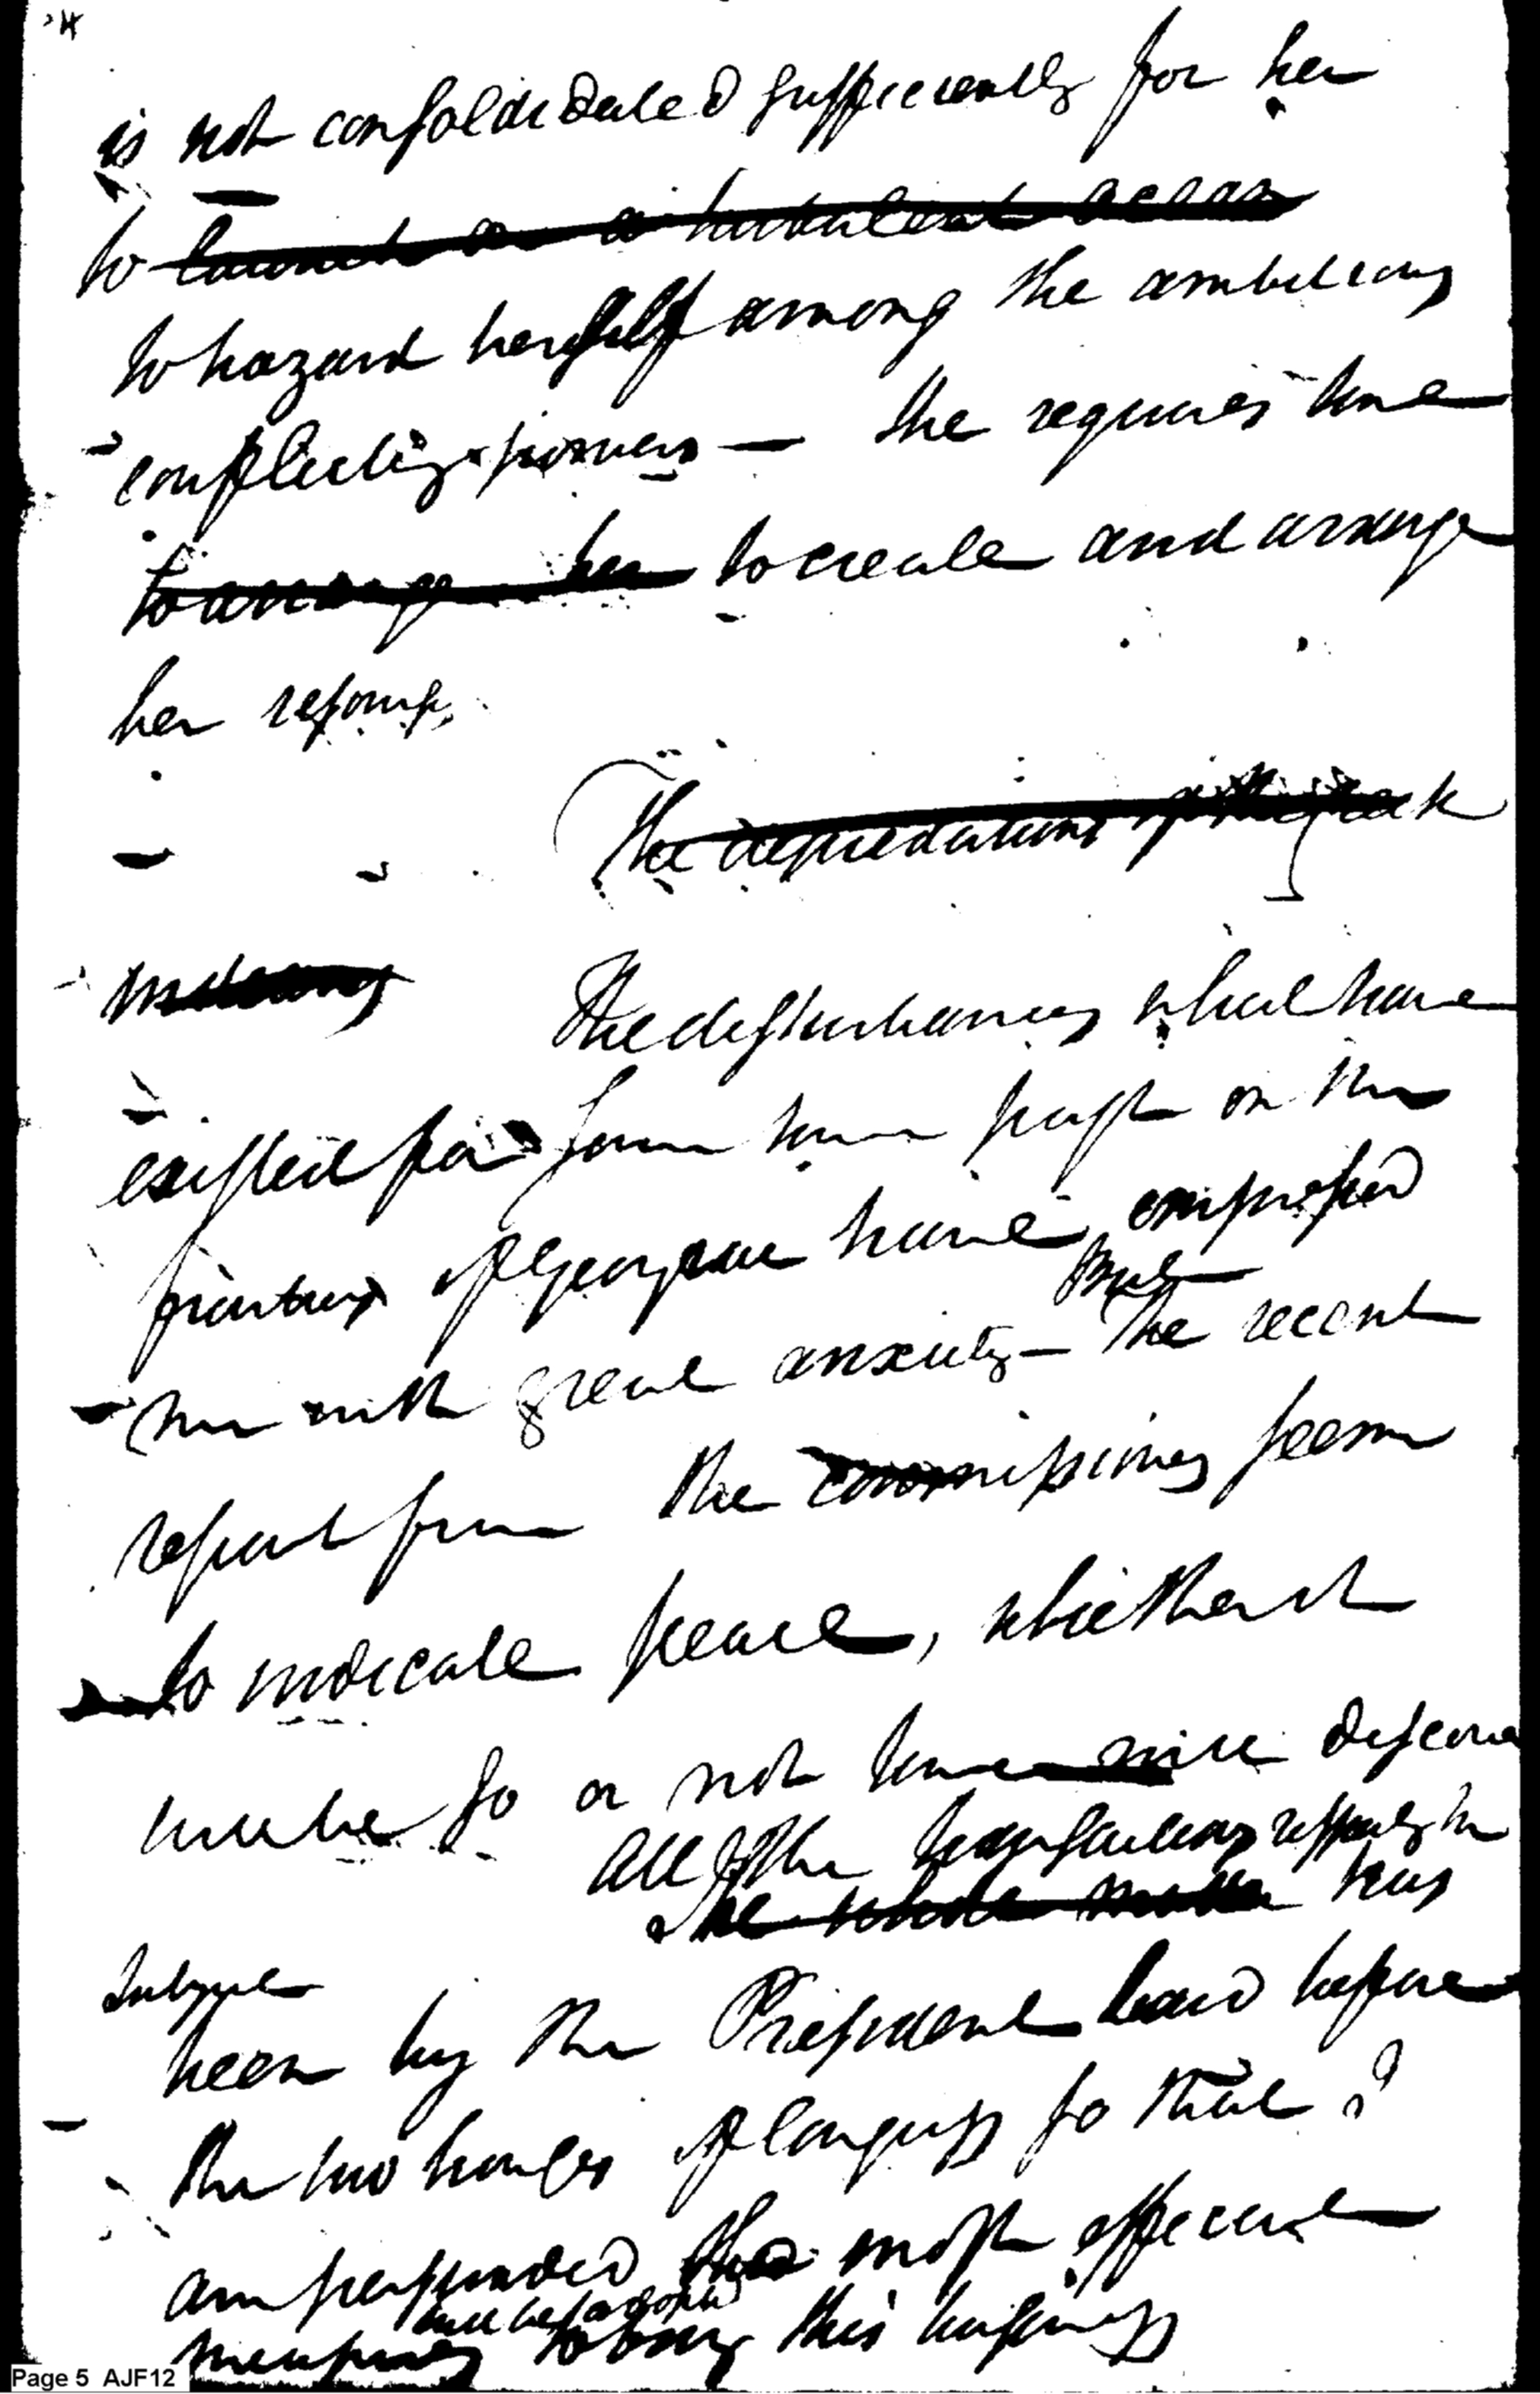 is not consolidated sufficiently for her
to launch on a turbulent ocean
to hazard herself among the ambitious
conflicting powers — She requires time
to arrange her to create and arrange
her resources
The depredations of the Creek
Indians The disturbances which have
existed for some time past on the
frontiers of Georgia have impressed
me with great anxiety — But The recent
report from the commissioners seem
to indicate peace, whether it
will be so or not time will discover
All the transactions respecting the
The whole matter has
Subject
been by the President laid before
the two houses of Congress so that I
am persuaded the most efficient
measures will be adopted to bring this business
Page 5 AJF12